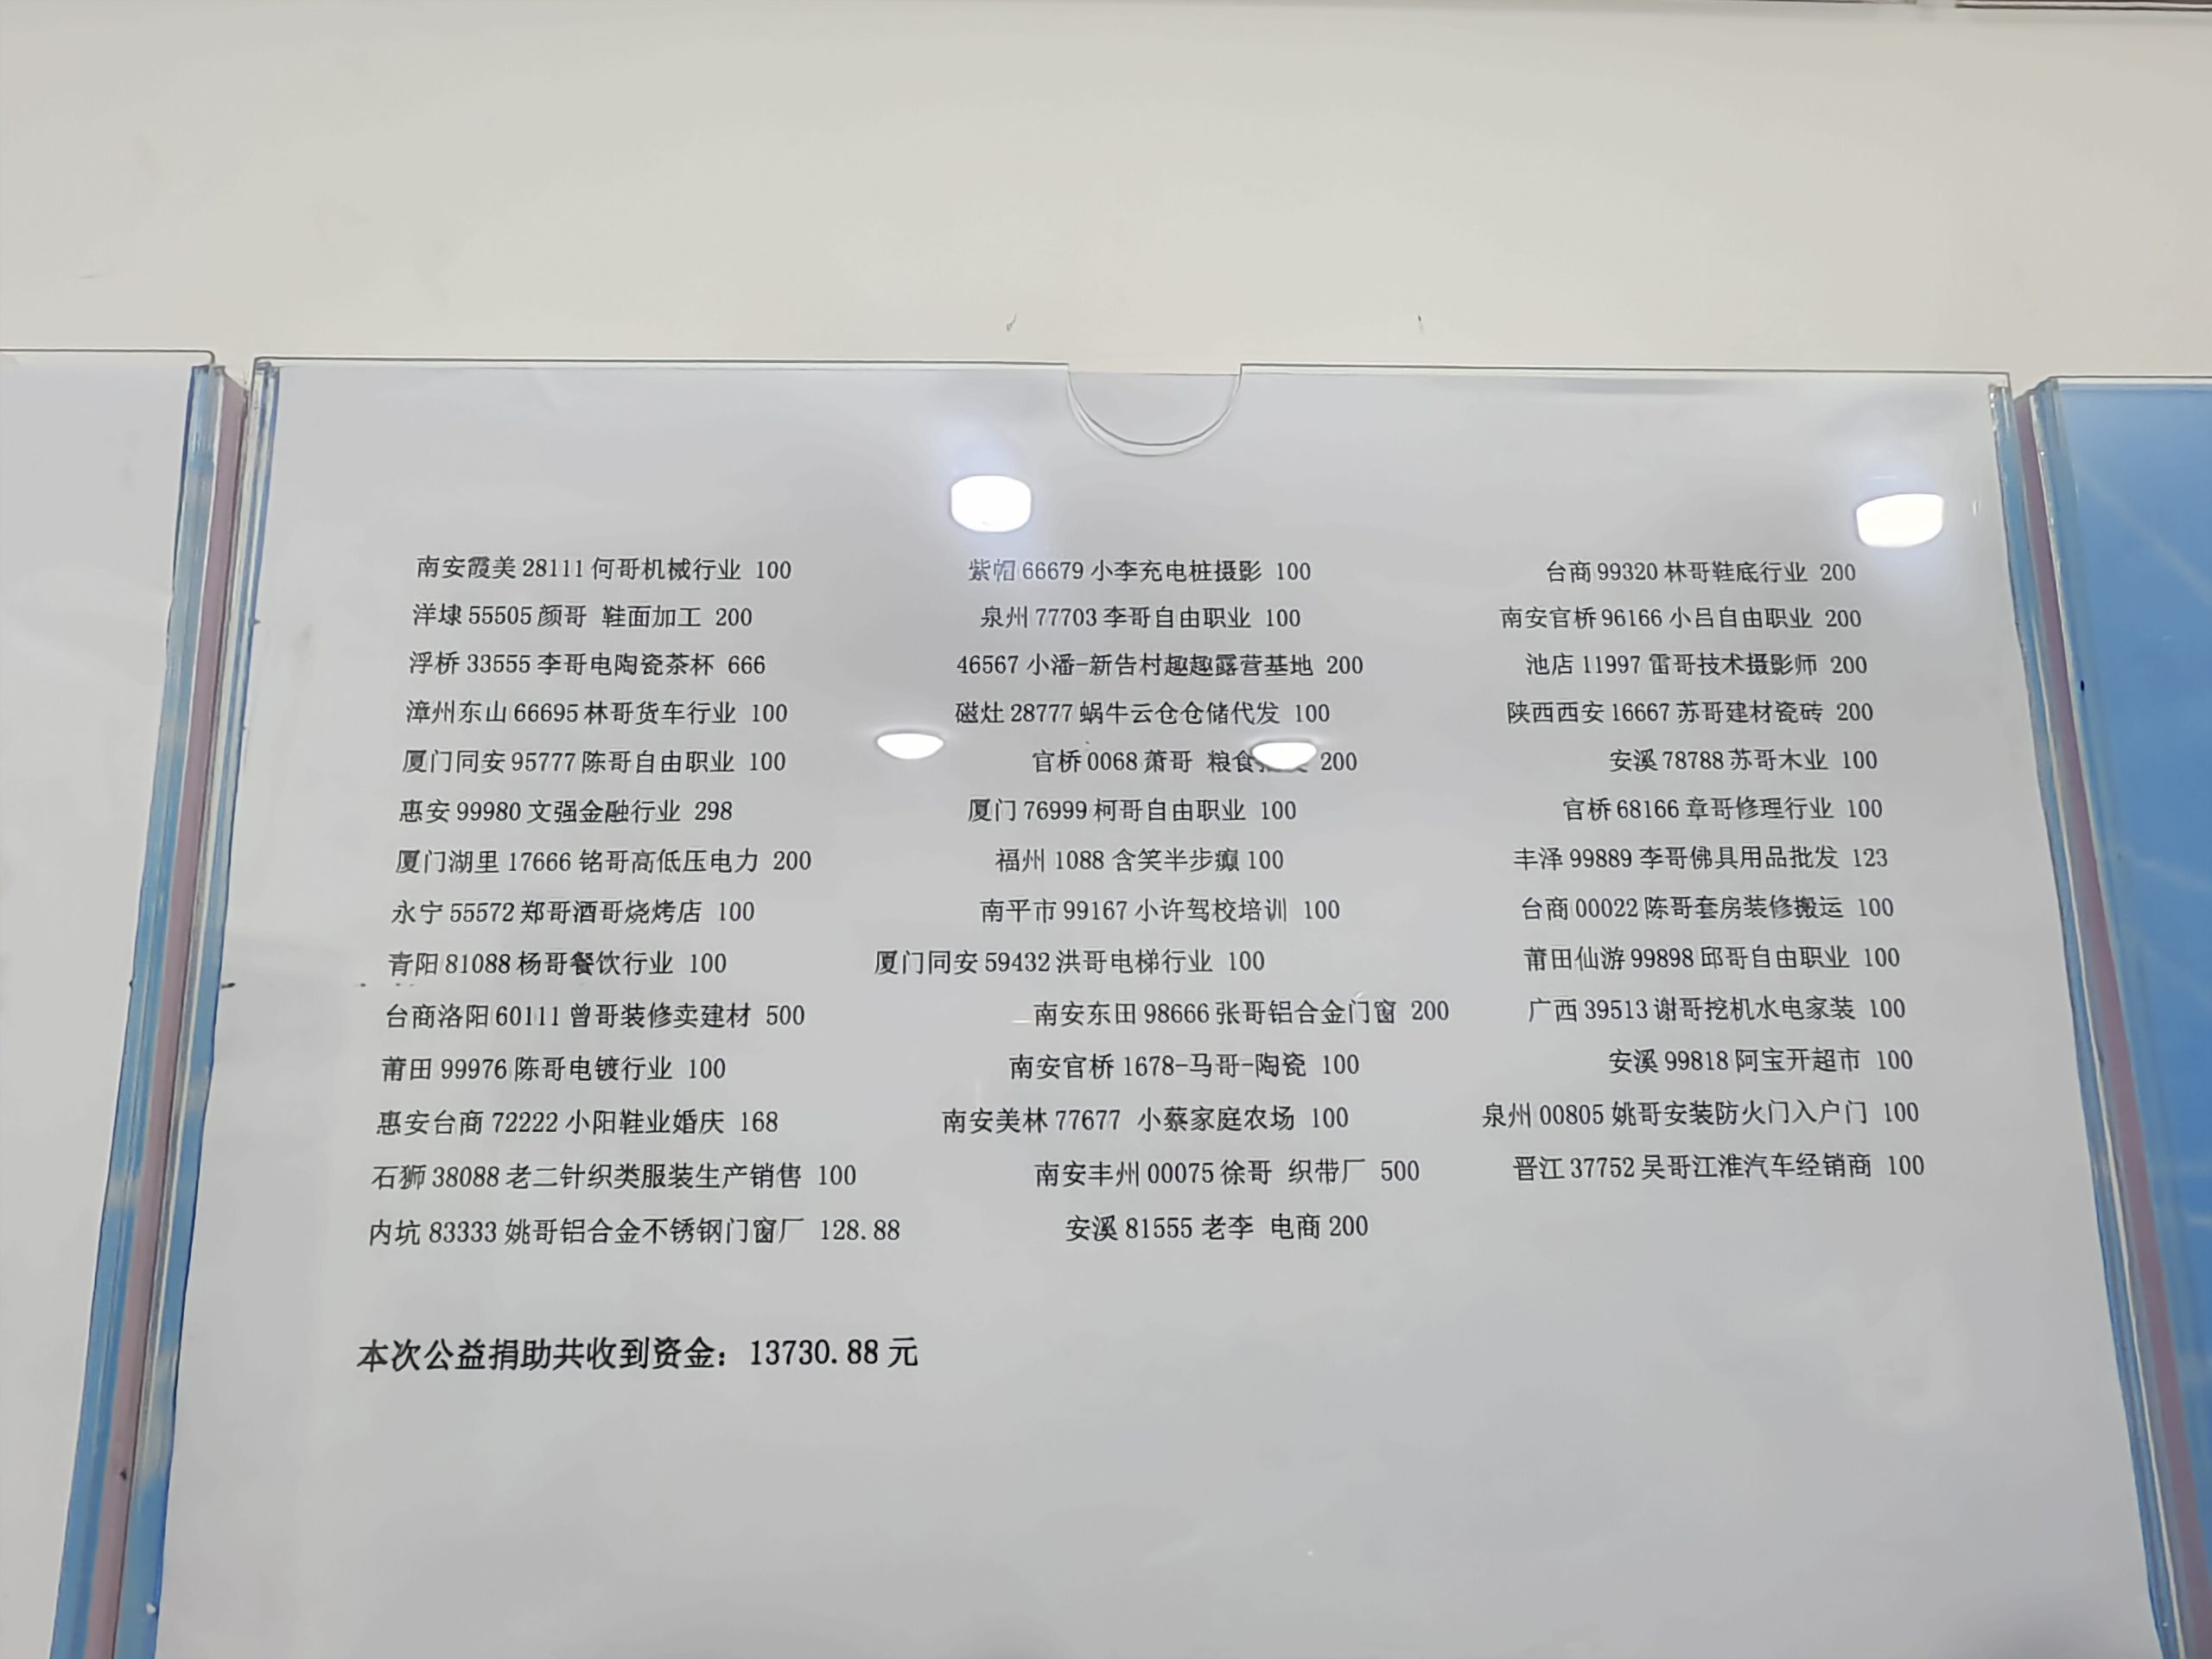 南安霞美 28111 何哥机械行业 100
洋埭 55505 颜哥 鞋面加工 200
浮桥 33555 李哥电陶瓷茶杯 666
漳州东山 66695 林哥货车行业 100
厦门同安 95777 陈哥自由职业 100
惠安 99980 文强金融行业 298
厦门湖里 17666 铭哥高低压电力 200
永宁 55572 郑哥酒哥烧烤店 100
青阳 81088 杨哥餐饮行业 100
台商洛阳 60111 曾哥装修卖建材 500
莆田 99976 陈哥电镀行业 100
惠安台商 72222 小阳鞋业婚庆 168
石狮 38088 老二针织类服装生产销售 100
内坑 83333 姚哥铝合金不锈钢门窗厂 128.88
紫帽 66679 小李充电桩摄影 100
泉州 77703 李哥自由职业 100
46567 小潘-新告村趣趣露营基地 200
磁灶 28777 蜗牛云仓仓储代发 100
官桥 0068 萧哥 粮食 200
厦门 76999 柯哥自由职业 100
福州 1088 含笑半步癫 100
南平市 99167 小许驾校培训 100
厦门同安 59432 洪哥电梯行业 100
南安东田 98666 张哥铝合金门窗 200
南安官桥 1678-马哥-陶瓷 100
南安美林 77677 小蔡家庭农场 100
南安丰州 00075 徐哥 织带厂 500
安溪 81555 老李 电商 200
台商 99320 林哥鞋底行业 200
南安官桥 96166 小吕自由职业 200
池店 11997 雷哥技术摄影师 200
陕西西安 16667 苏哥建材瓷砖 200
安溪 78788 苏哥木业 100
官桥 68166 章哥修理行业 100
丰泽 99889 李哥佛具用品批发 123
台商 00022 陈哥套房装修搬运 100
莆田仙游 99898 邱哥自由职业 100
广西 39513 谢哥挖机水电家装 100
安溪 99818 阿宝开超市 100
泉州 00805 姚哥安装防火门入户门 100
晋江 37752 吴哥江淮汽车经销商 100
本次公益捐助共收到资金：13730.88 元